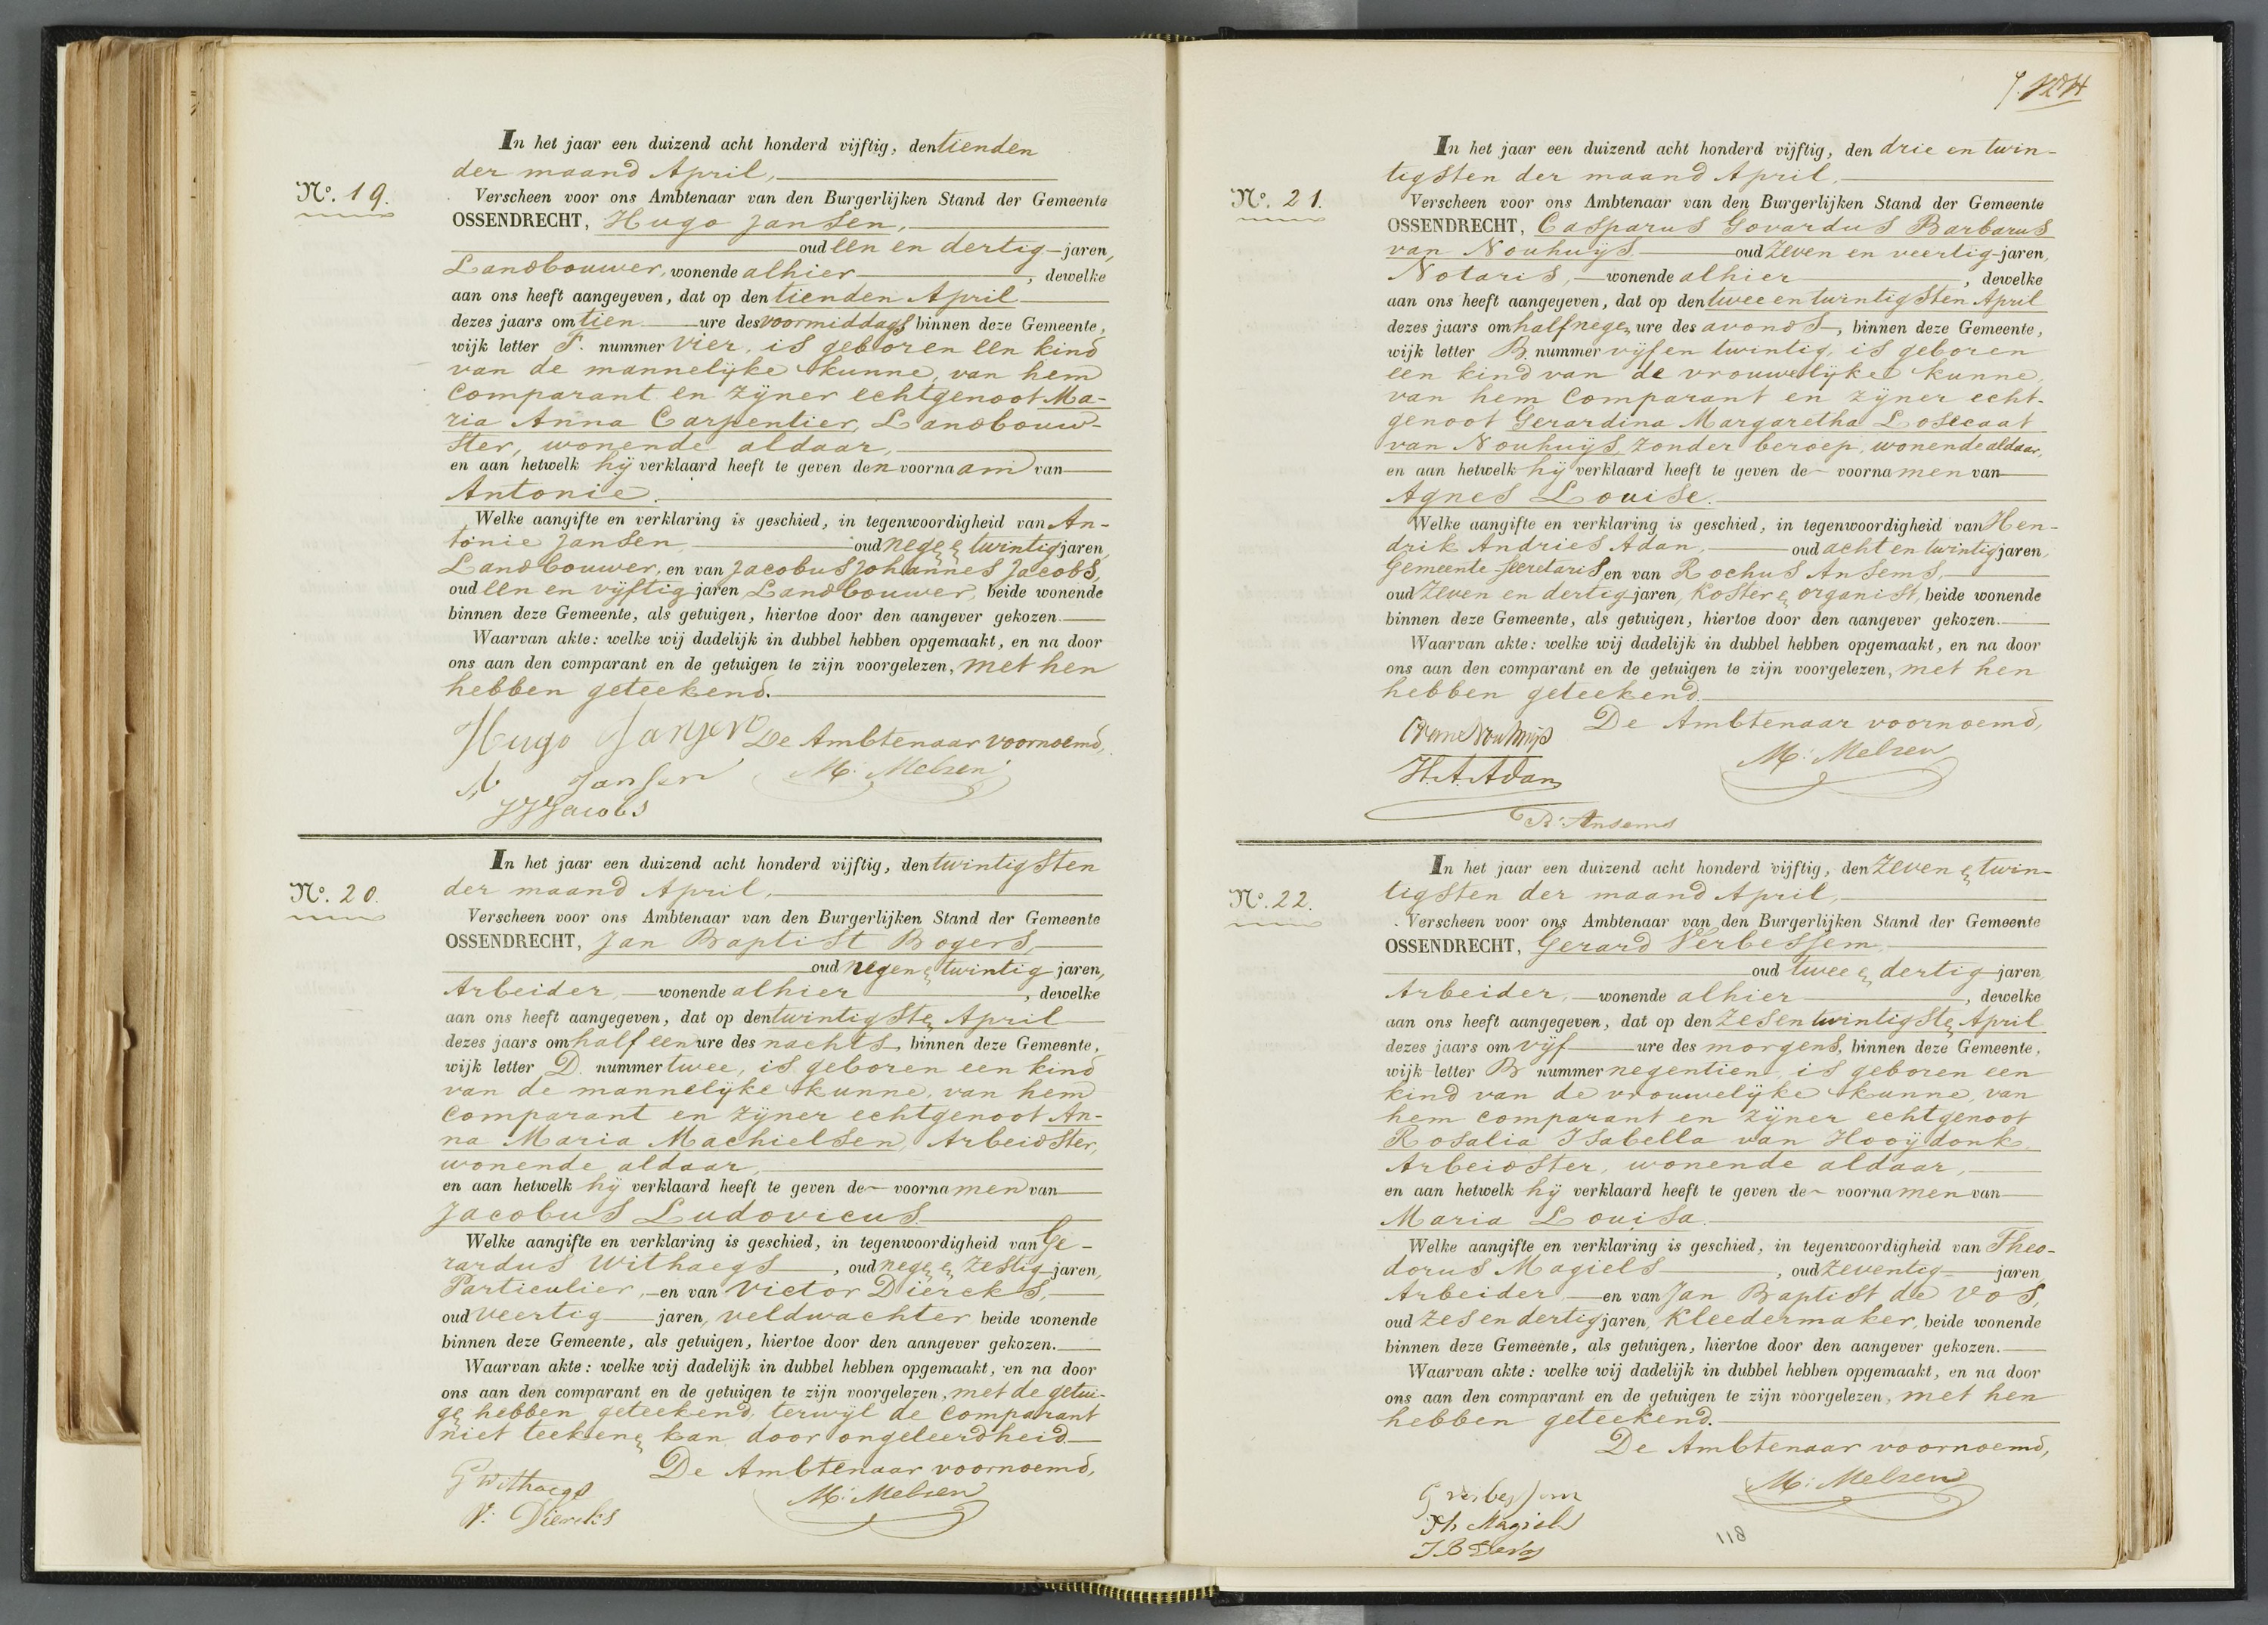 In het jaar een duizend acht honderd vijftig, den tienden
der maand April,
No. 19.
Verscheen voor ons Ambtenaar van den Burgerlijken Stand der Gemeente
OSSENDRECHT, Hugo Jansen,
oud een en dertig jaren,
Landbouwer, wonende alhier, dewelke
aan ons heeft aangegeven, dat op den tienden April
dezes jaars om tien ure des voormiddags binnen deze Gemeente,
wijk letter F. nummer vier, is geboren een kind
van de mannelijke kunne, van hem
Comparant en zijner echtgenoot Ma-
ria Anna Carpentier, Landbouw-
ster, wonende aldaar,
en aan hetwelk hij verklaard heeft te geven den voornaam van
Antonie.
Welke aangifte en verklaring is geschied, in tegenwoordigheid van An-
tonie Jansen, oud negen en twintig jaren,
Landbouwer, en van Jacobus Johannes Jacobs,
oud een en vijftig jaren, Landbouwer, beide wonende
binnen deze Gemeente, als getuigen, hiertoe door den aangever gekozen.
Waarvan akte: welke wij dadelijk in dubbel hebben opgemaakt, en na door
ons aan den comparant en de getuigen te zijn voorgelezen, met hen
hebben geteekend.
Hugo Jansen De Ambtenaar voornoemd,
A Jansen M. Melsen
JJ Jacobs
In het jaar een duizend acht honderd vijftig, den twintigsten
der maand April,
No. 20.
Verscheen voor ons Ambtenaar van den Burgerlijken Stand der Gemeente
OSSENDRECHT, Jan Baptist Bogers,
oud negen en twintig jaren,
Arbeider, wonende alhier, dewelke
aan ons heeft aangegeven, dat op den twintigsten April
dezes jaars om half een ure des nachts, binnen deze Gemeente,
wijk letter D. nummer twee, is geboren een kind
van de mannelijke kunne, van hem
Comparant en zijner echtgenoot An-
na Maria Machielsen, Arbeidster,
wonende aldaar,
en aan hetwelk hij verklaard heeft te geven de voornamen van
Jacobus Ludovicus.
Welke aangifte en verklaring is geschied, in tegenwoordigheid van Ge-
rardus Withaegs, oud negen en zestig jaren,
Particulier, en van Victor Diercks,
oud veertig jaren, veldwachter beide wonende
binnen deze Gemeente, als getuigen, hiertoe door den aangever gekozen.
Waarvan akte: welke wij dadelijk in dubbel hebben opgemaakt, en na door
ons aan den comparant en de getuigen te zijn voorgelezen, met de getui-
gen hebben geteekend, terwijl de Comparant
niet teekenen kan door ongeleerdheid.
G Withaegs De Ambtenaar voornoemd,
V. Diercks M. Melsen
7.
In het jaar een duizend acht honderd vijftig, den drie en twin-
tigsten der maand April,
No. 21.
Verscheen voor ons Ambtenaar van den Burgerlijken Stand der Gemeente
OSSENDRECHT, Casparus Govardus Barbarus
van Nouhuijs oud zeven en veertig jaren,
Notaris, wonende alhier, dewelke
aan ons heeft aangegeven, dat op den twee en twintigsten April
dezes jaars om half negen ure des avonds, binnen deze Gemeente,
wijk letter B. nummer vijf en twintig, is geboren
een kind van de vrouwelijke kunne,
van hem Comparant en zijner echt-
genoot Gerardina Margaretha Loscaat
van Nouhuijs, zonder beroep, wonende aldaar,
en aan hetwelk hij verklaard heeft te geven de voornamen van
Agnes Louise.
Welke aangifte en verklaring is geschied, in tegenwoordigheid van Hen-
drik Andries Adan, oud acht en twintig jaren,
Gemeente-secretaris, en van Rochus Ansems,
oud zeven en dertig jaren, koster en organist, beide wonende
binnen deze Gemeente, als getuigen, hiertoe door den aangever gekozen.
Waarvan akte: welke wij dadelijk in dubbel hebben opgemaakt, en na door
ons aan den comparant en de getuigen te zijn voorgelezen, met hen
hebben geteekend.
De Ambtenaar voornoemd,
M. Melsen
H.A. Adan
R. Ansems
In het jaar een duizend acht honderd vijftig, den zeven en twin-
tigsten der maand April,
No. 22.
Verscheen voor ons Ambtenaar van den Burgerlijken Stand der Gemeente
OSSENDRECHT, Gerard Verbessem,
oud twee en dertig jaren
Arbeider, wonende alhier, dewelke
aan ons heeft aangegeven, dat op den zes en twintigsten April
dezes jaars om vijf ure des morgens, binnen deze Gemeente,
wijk letter B nummer negentien, is geboren een
kind van de vrouwelijke kunne, van
hem comparant en zijner echtgenoot
Rosalia Isabella van Hooijdonk,
Arbeidster, wonende aldaar,
en aan hetwelk hij verklaard heeft te geven de voornamen van
Maria Louisa.
Welke aangifte en verklaring is geschied, in tegenwoordigheid van Theo-
dorus Magiels, oud zeventig jaren
Arbeider, en van Jan Baptist de Vos,
oud zes en dertig jaren, Kleedermaker, beide wonende
binnen deze Gemeente, als getuigen, hiertoe door den aangever gekozen.
Waarvan akte: welke wij dadelijk in dubbel hebben opgemaakt, en na door
ons aan den comparant en de getuigen te zijn voorgelezen, met hen
hebben geteekend.
De Ambtenaar voornoemd,
M. Melsen
G Verbessem
Th Magiels
J B De Vos
118